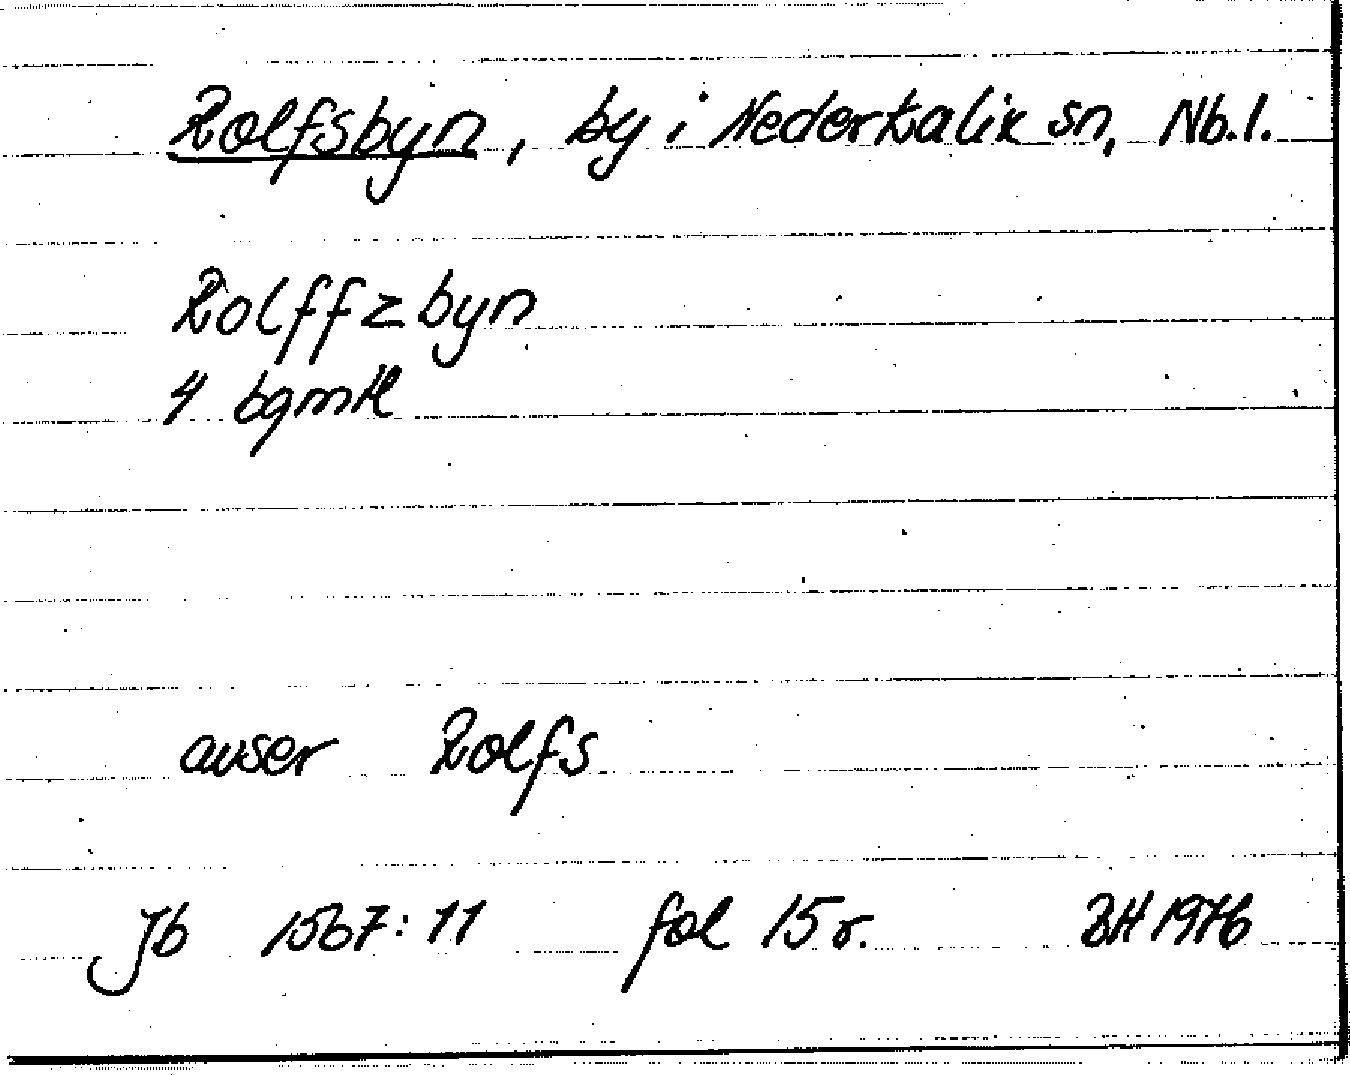 Rolfsbyn, by i Nederkalix sn, Nb.l.
Rolffzbyn
4 bgmtl
avser Rolfs
Jb 1567:11 fol 15 r. BH 1976